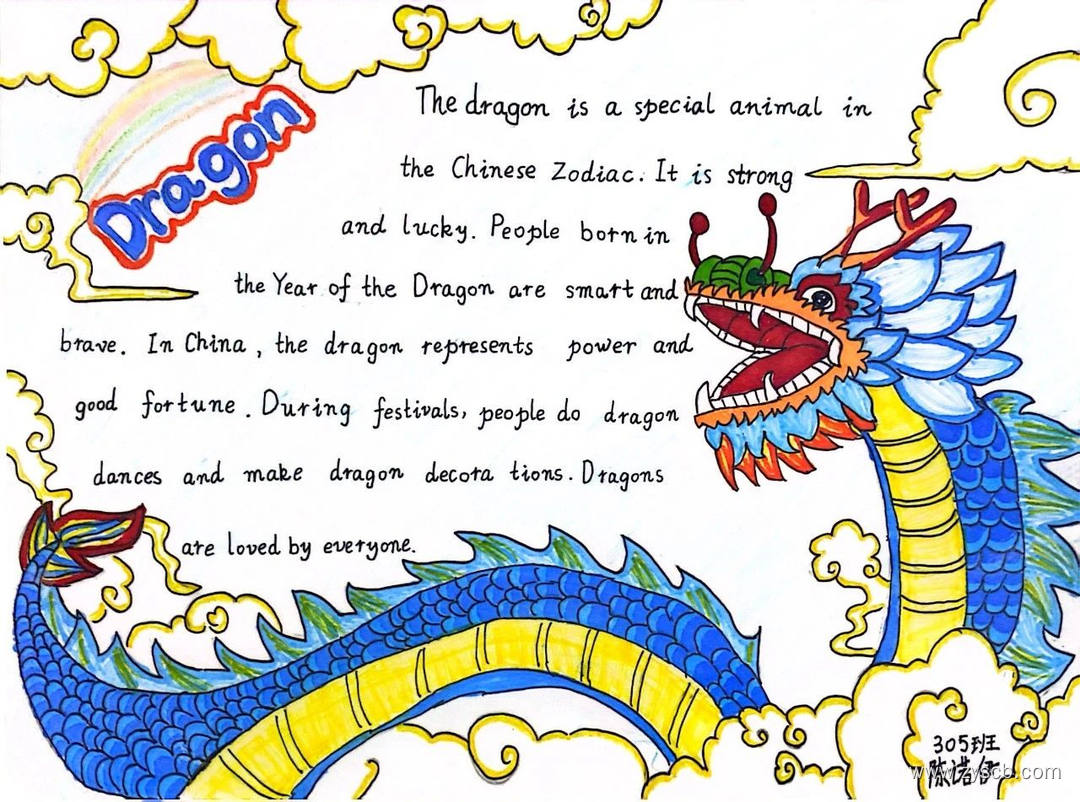 Dragon
The dragon is a special animal in
the Chinese Zodiac. It is strong
and lucky. People born in
the Year of the Dragon are smart and
brave. In China, the dragon represents power and
good fortune. During festivals, people do dragon
dances and make dragon decora tions. Dragons
are loved by everyone.
305班
陈诺
www.zyscb.com